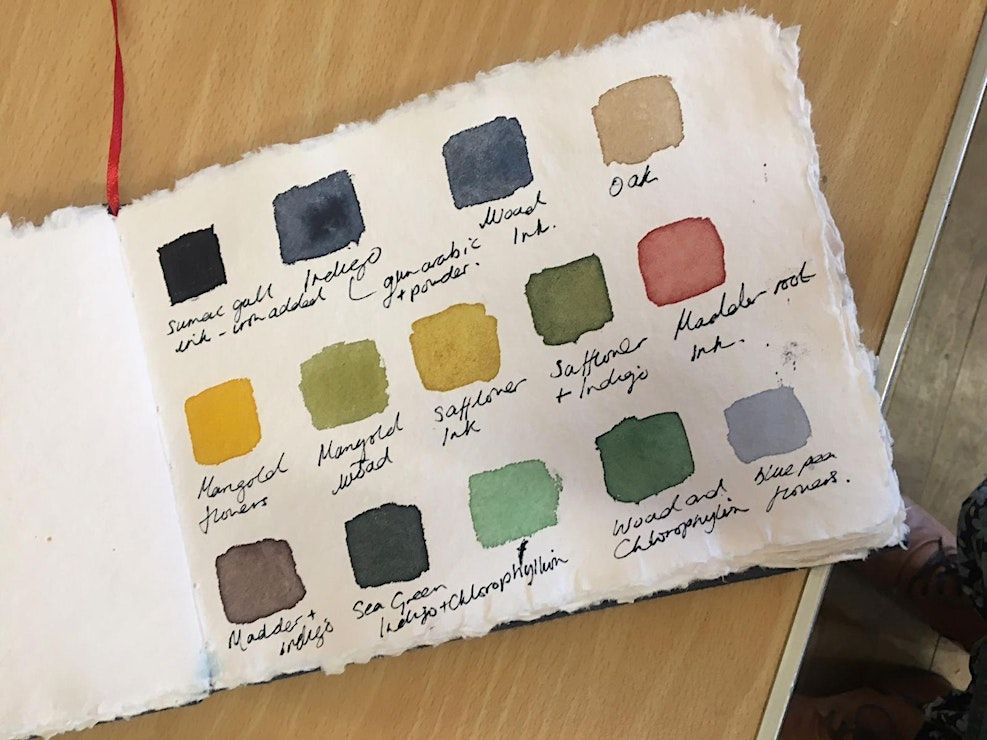 Sumac gall
ink - iron added
Indigo
gum arabic
+ powder.
Woad
Ink.
Oak
Marigold
flowers
Marigold
+ Woad
Safflower
Ink
Safflower
+ Indigo
Madder root
Ink.
Madder +
Indigo
Sea Green
Indigo + Chlorophyllin
Woad and
Chlorophyllin
blue pea
flowers.